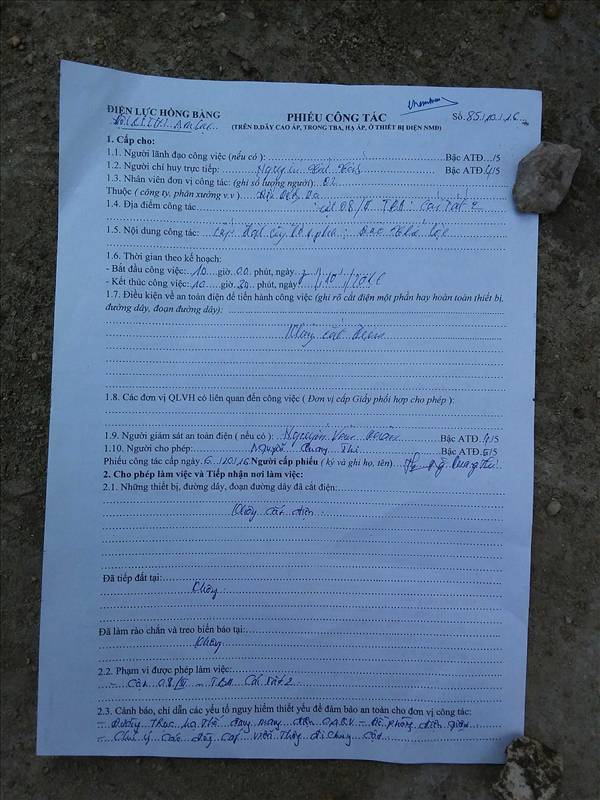 ĐIỆN LỰC HỒNG BÀNG
PHIẾU CÔNG TÁC
Số: 85/10/16
(TRÊN Đ.DÂY CAO ÁP, TRONG TBA, HẠ ÁP, Ở THIẾT BỊ ĐIỆN NMĐ)
1. Cấp cho:
1.1. Người lãnh đạo công việc (nếu có ): Bậc ATĐ.../5
1.2. Người chỉ huy trực tiếp: Nguyễn Bậc ATĐ 4/5
1.3. Nhân viên đơn vị công tác: (ghi số lượng người): 02
Thuộc ( công ty, phân xưởng v.v )
1.4. Địa điểm công tác : cột 08/II TBA: Cái Tắt 2
1.5. Nội dung công tác:
1.6. Thời gian theo kế hoạch:
- Bắt đầu công việc: 10 giờ 00 phút, ngày 7/10/2016
- Kết thúc công việc: 10 giờ 30 phút, ngày
1.7. Điều kiện về an toàn điện để tiến hành công việc (ghi rõ cắt điện một phần hay hoàn toàn thiết bị,
đường dây, đoạn đường dây):
Không cắt điện
1.8. Các đơn vị QLVH có liên quan đến công việc ( Đơn vị cấp Giấy phối hợp cho phép ):
1.9. Người giám sát an toàn điện ( nếu có ): Nguyễn Văn Bậc ATĐ 4/5
1.10. Người cho phép: Nguyễn Quang Thi Bậc ATĐ 5/5
Phiếu công tác cấp ngày 6/10/16 Người cấp phiếu ( ký và ghi họ, tên)
2. Cho phép làm việc và Tiếp nhận nơi làm việc:
2.1. Những thiết bị, đường dây, đoạn đường dây đã cắt điện:
Không cắt điện
Đã tiếp đất tại:
Không
Đã làm rào chắn và treo biển báo tại:
Không
2.2. Phạm vi được phép làm việc:
- Cột 08/II - TBA Cái Tắt 2
2.3. Cảnh báo, chỉ dẫn các yếu tố nguy hiểm thiết yếu để đảm bảo an toàn cho đơn vị công tác:
- Đường trục hạ thế đang mang điện 0,4kV - Đề phòng điện giật
- Chú ý các đường cáp viễn thông đi chung cột